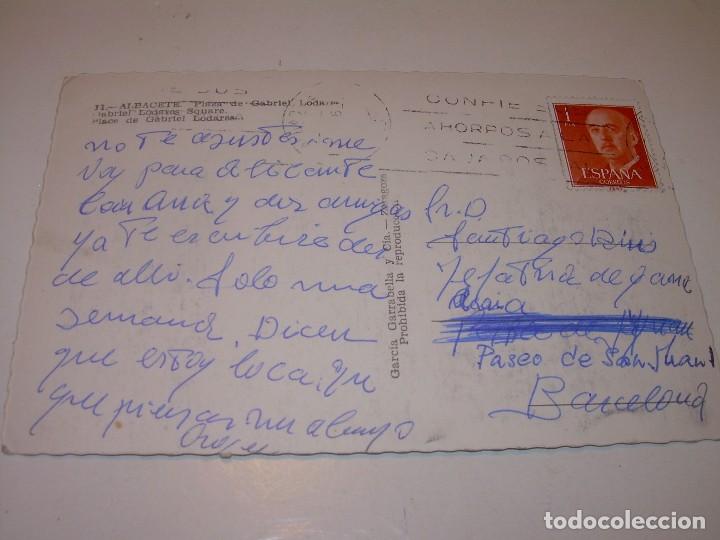 11.- ALBACETE. Plaza de Gabriel Lodares
Gabriel Lodares Square.
Place de Gabriel Lodares.
CONFIE
AHORROS A LA
CAJA POS
1
PTA
ESPAÑA
CORREOS
no te asustes que
Voy para Alicante
con Ana y dos amigas
ya te escribiré des
de alli. Solo una
semana. Dicen
que estoy loca. tu
que piensas un abrazo
García Garrabella y Cía.-Zaragoza
Prohibida la reproducción
Sr. D.
Santiago
Jefatura de
Paseo de San Juan
Barcelona
todocoleccion